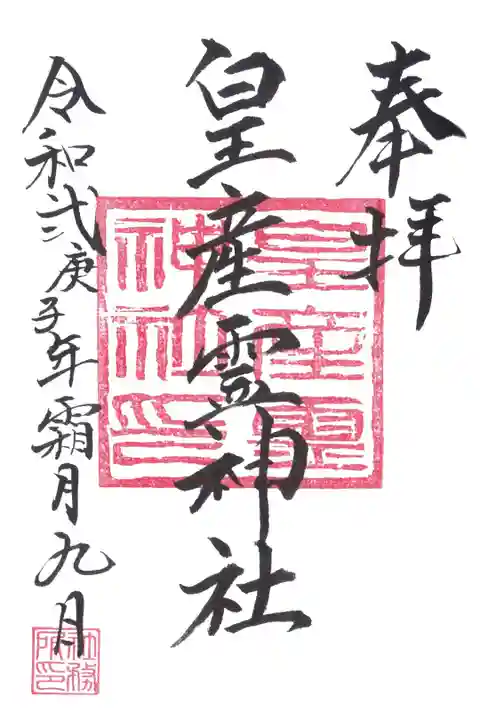 奉拝
皇産霊神社
令和弐庚子年霜月九月
皇産霊神社印
社務所印